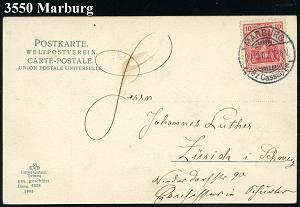 3550 Marburg
POSTKARTE.
WELTPOSTVEREIN.
CARTE-POSTALE.
UNION POSTALE UNIVERSELLE.
10 10
MARBURG
(Bz. Cassel)
Herrn
Johannes Luther
Zürich i. Schweiz
Niederdorfstr 90
ges. geschützt